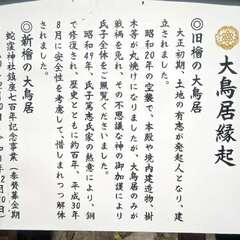 大鳥居縁起
◎旧檜の大鳥居
大正初期、土地の有志が発起人となり、建
立されました。
昭和20年の空襲で、本殿や境内建造物、樹
木等が丸焼けになりましたが、大鳥居のみが
戦禍を免れ、その不思議な神の御加護により
氏子全体をご覧くださいました。
昭和49年、氏子篤志氏家の熱意により、銅
で修復され、歴史とともに約百年、平成30年
8月に安全性を考慮して、惜しまれつつ解体
されました。
◎新檜の大鳥居
蛇窪神社鎮座七百年記念事業（奉賛募金期